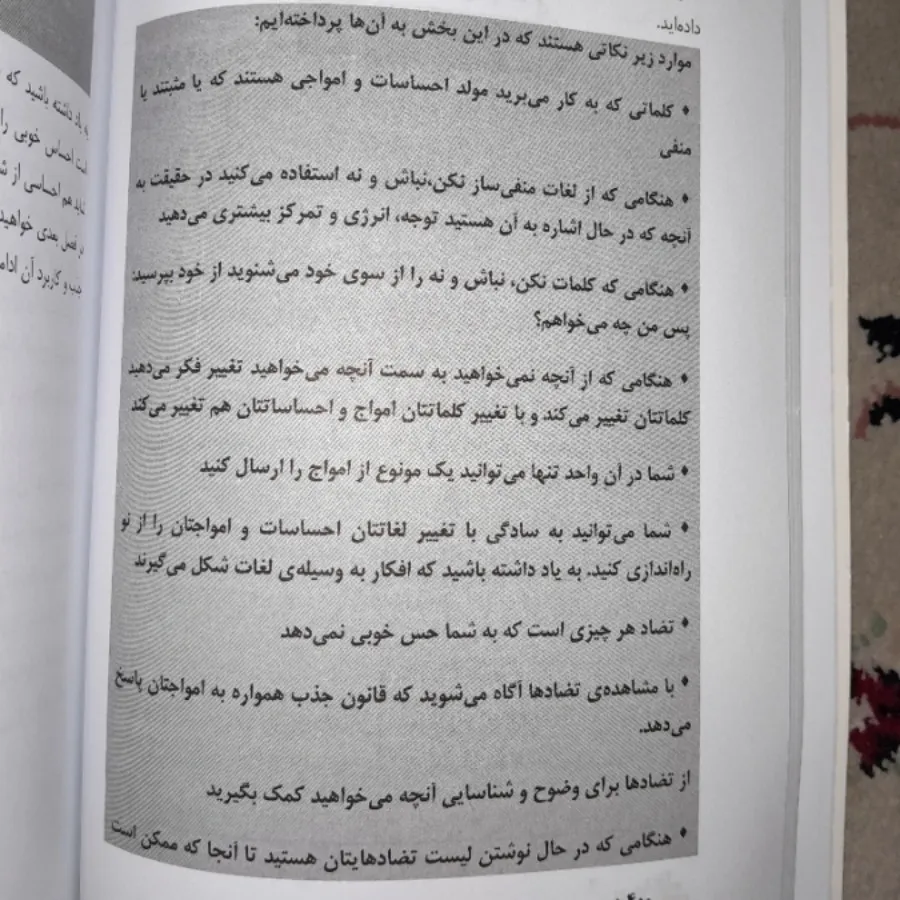 داده‌اید.
موارد زیر نکاتی هستند که در این بخش به آن‌ها پرداخته‌ایم:
• کلماتی که به کار می‌برید مولد احساسات و امواجی هستند که یا مثبتند یا
منفی
• هنگامی که از لغات منفی‌ساز نکن،نباش و نه استفاده می‌کنید در حقیقت به
آنچه که در حال اشاره به آن هستید توجه، انرژی و تمرکز بیشتری می‌دهید
• هنگامی که کلمات نکن، نباش و نه را از سوی خود می‌شنوید از خود بپرسید:
پس من چه می‌خواهم؟
• هنگامی که از آنچه نمی‌خواهید به سمت آنچه می‌خواهید تغییر فکر می‌دهید
کلماتتان تغییر می‌کند و با تغییر کلماتتان امواج و احساساتتان هم تغییر می‌کند
• شما در آن واحد تنها می‌توانید یک مونوع از امواج را ارسال کنید
• شما می‌توانید به سادگی با تغییر لغاتتان احساسات و امواجتان را از نو
راه‌اندازی کنید. به یاد داشته باشید که افکار به وسیله‌ی لغات شکل می‌گیرند
• تضاد هر چیزی است که به شما حس خوبی نمی‌دهد
• با مشاهده‌ی تضادها آگاه می‌شوید که قانون جذب همواره به امواجتان پاسخ
می‌دهد.
از تضادها برای وضوح و شناسایی آنچه می‌خواهید کمک بگیرید
• هنگامی که در حال نوشتن لیست تضادهایتان هستید تا آنجا که ممکن است
به یاد داشته باشید که
است احساس خوبی را
شاید هم احساسی از
در فصل بعدی خواهید
جذب و کاربرد آن